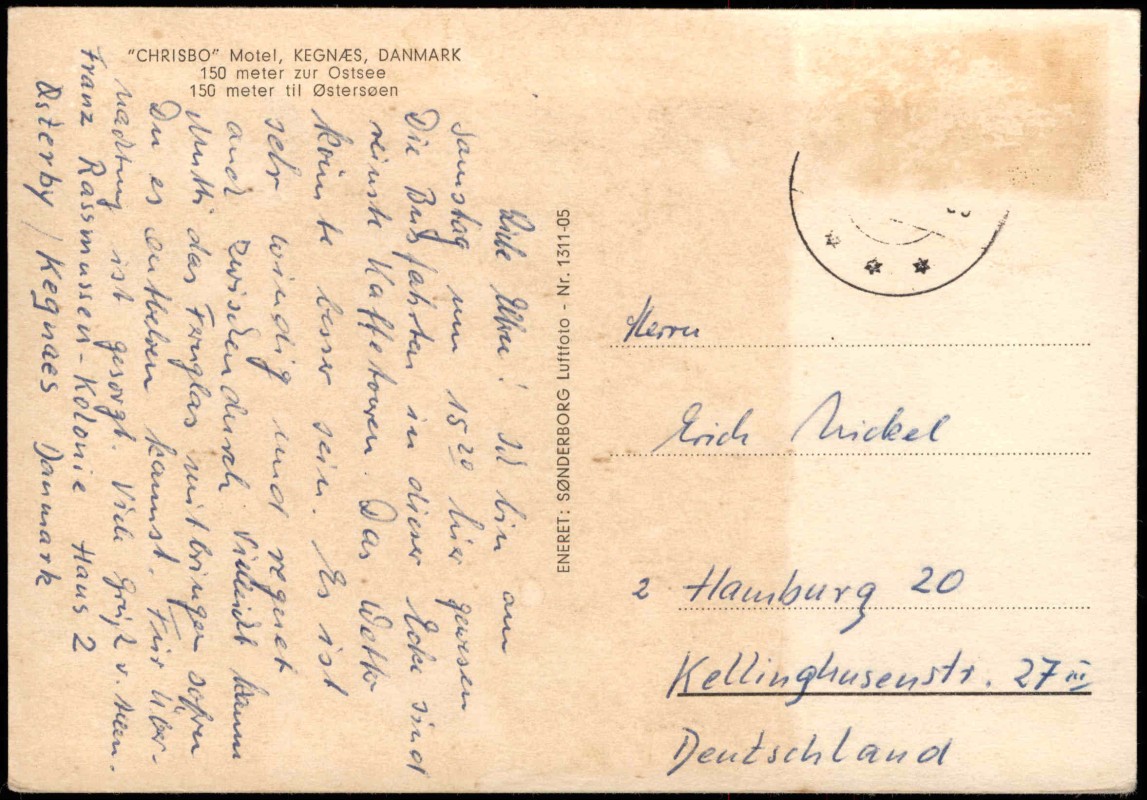 "CHRISBO" Motel, KEGNÆS, DANMARK
150 meter zur Ostsee
150 meter til Østersøen
Liebe Uhu! ich bin am
Samstag um 15 20 hier gewesen
Die Bus fahrten in dieser Ecke sind
reinste Kaffetouren. Das Wetter
könnte besser sein. Es ist
sehr windig und regnet
auch zwischendurch. Vielleicht kann
Mutti das Fernglas mitbringen sofern
Du es entbehren kannst. Für Über-
nachtung ist gesorgt. Viele Grüße v.
Franz Rassmussen-Kolonie Haus 2
Østerby / Kegnaes Danmark
ENERET: SØNDERBORG Luftfoto - Nr. 1311-05
Herrn
Erich Nickel
2 Hamburg 20
Kellinghusenstr. 27 III
Deutschland